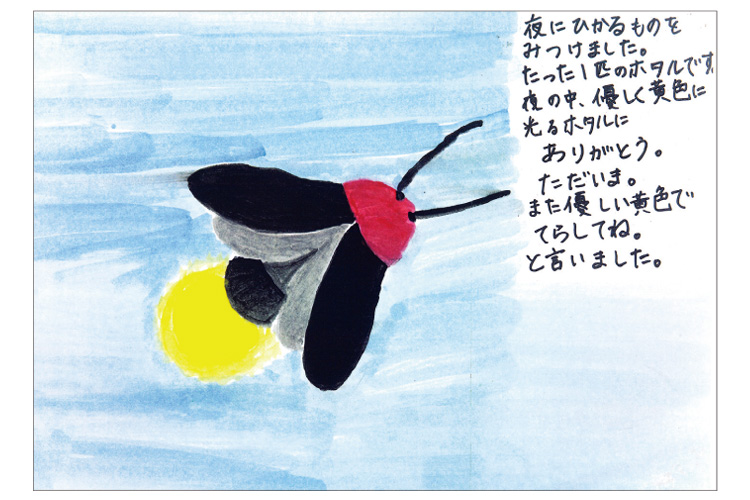 夜にひかるものを
みつけました。
たった1匹のホタルです。
夜の中、優しく黄色に
光るホタルに
ありがとう。
ただいま。
また優しい黄色で
てらしてね。
と言いました。